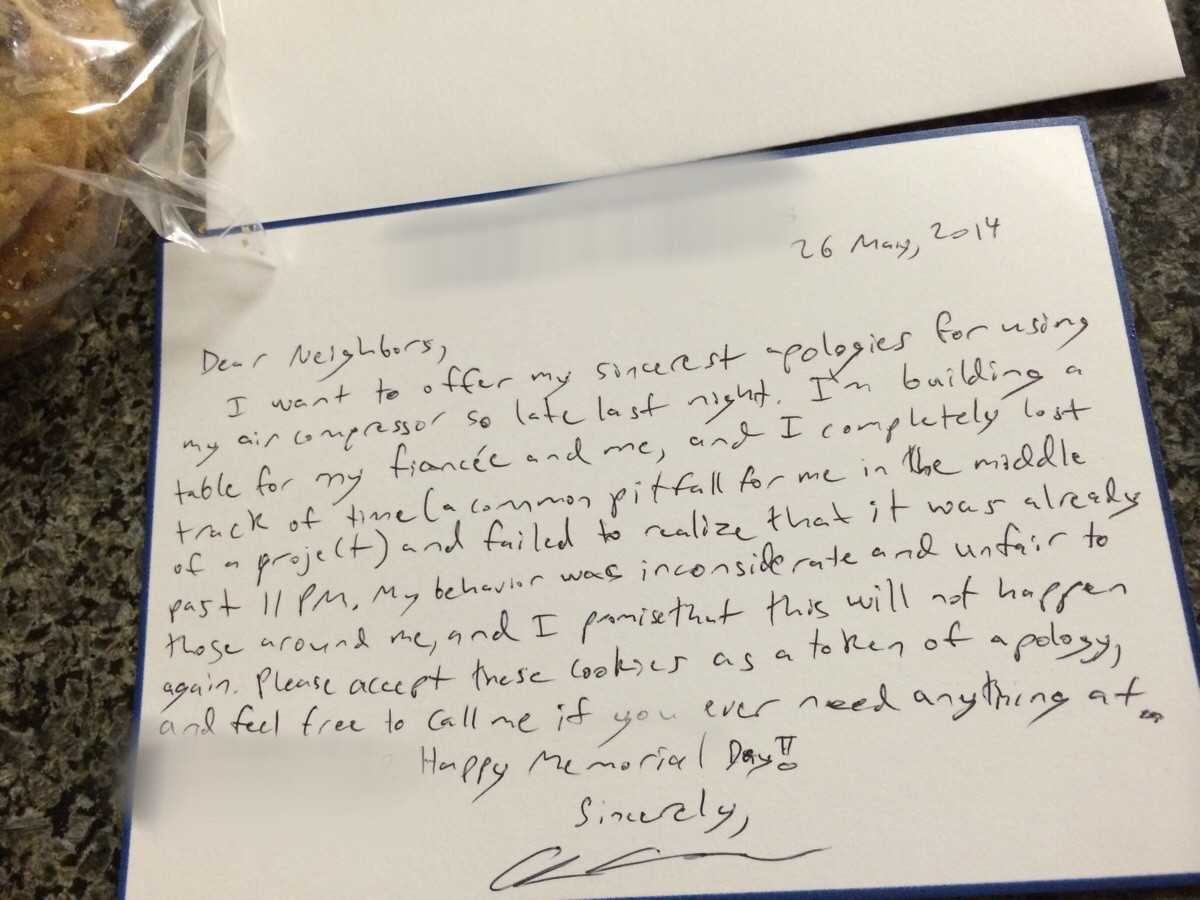 26 May, 2014
Dear Neighbors,
I want to offer my sincerest apologies for using
my air compressor so late last night. I'm building a
table for my fiancée and me, and I completely lost
track of time (a common pitfall for me in the middle
of a project) and failed to realize that it was already
past 11 PM. My behavior was inconsiderate and unfair to
those around me, and I promise that this will not happen
again. Please accept these cookies as a token of apology,
and feel free to call me if you ever need anything at
Happy Memorial Day!!
Sincerely,